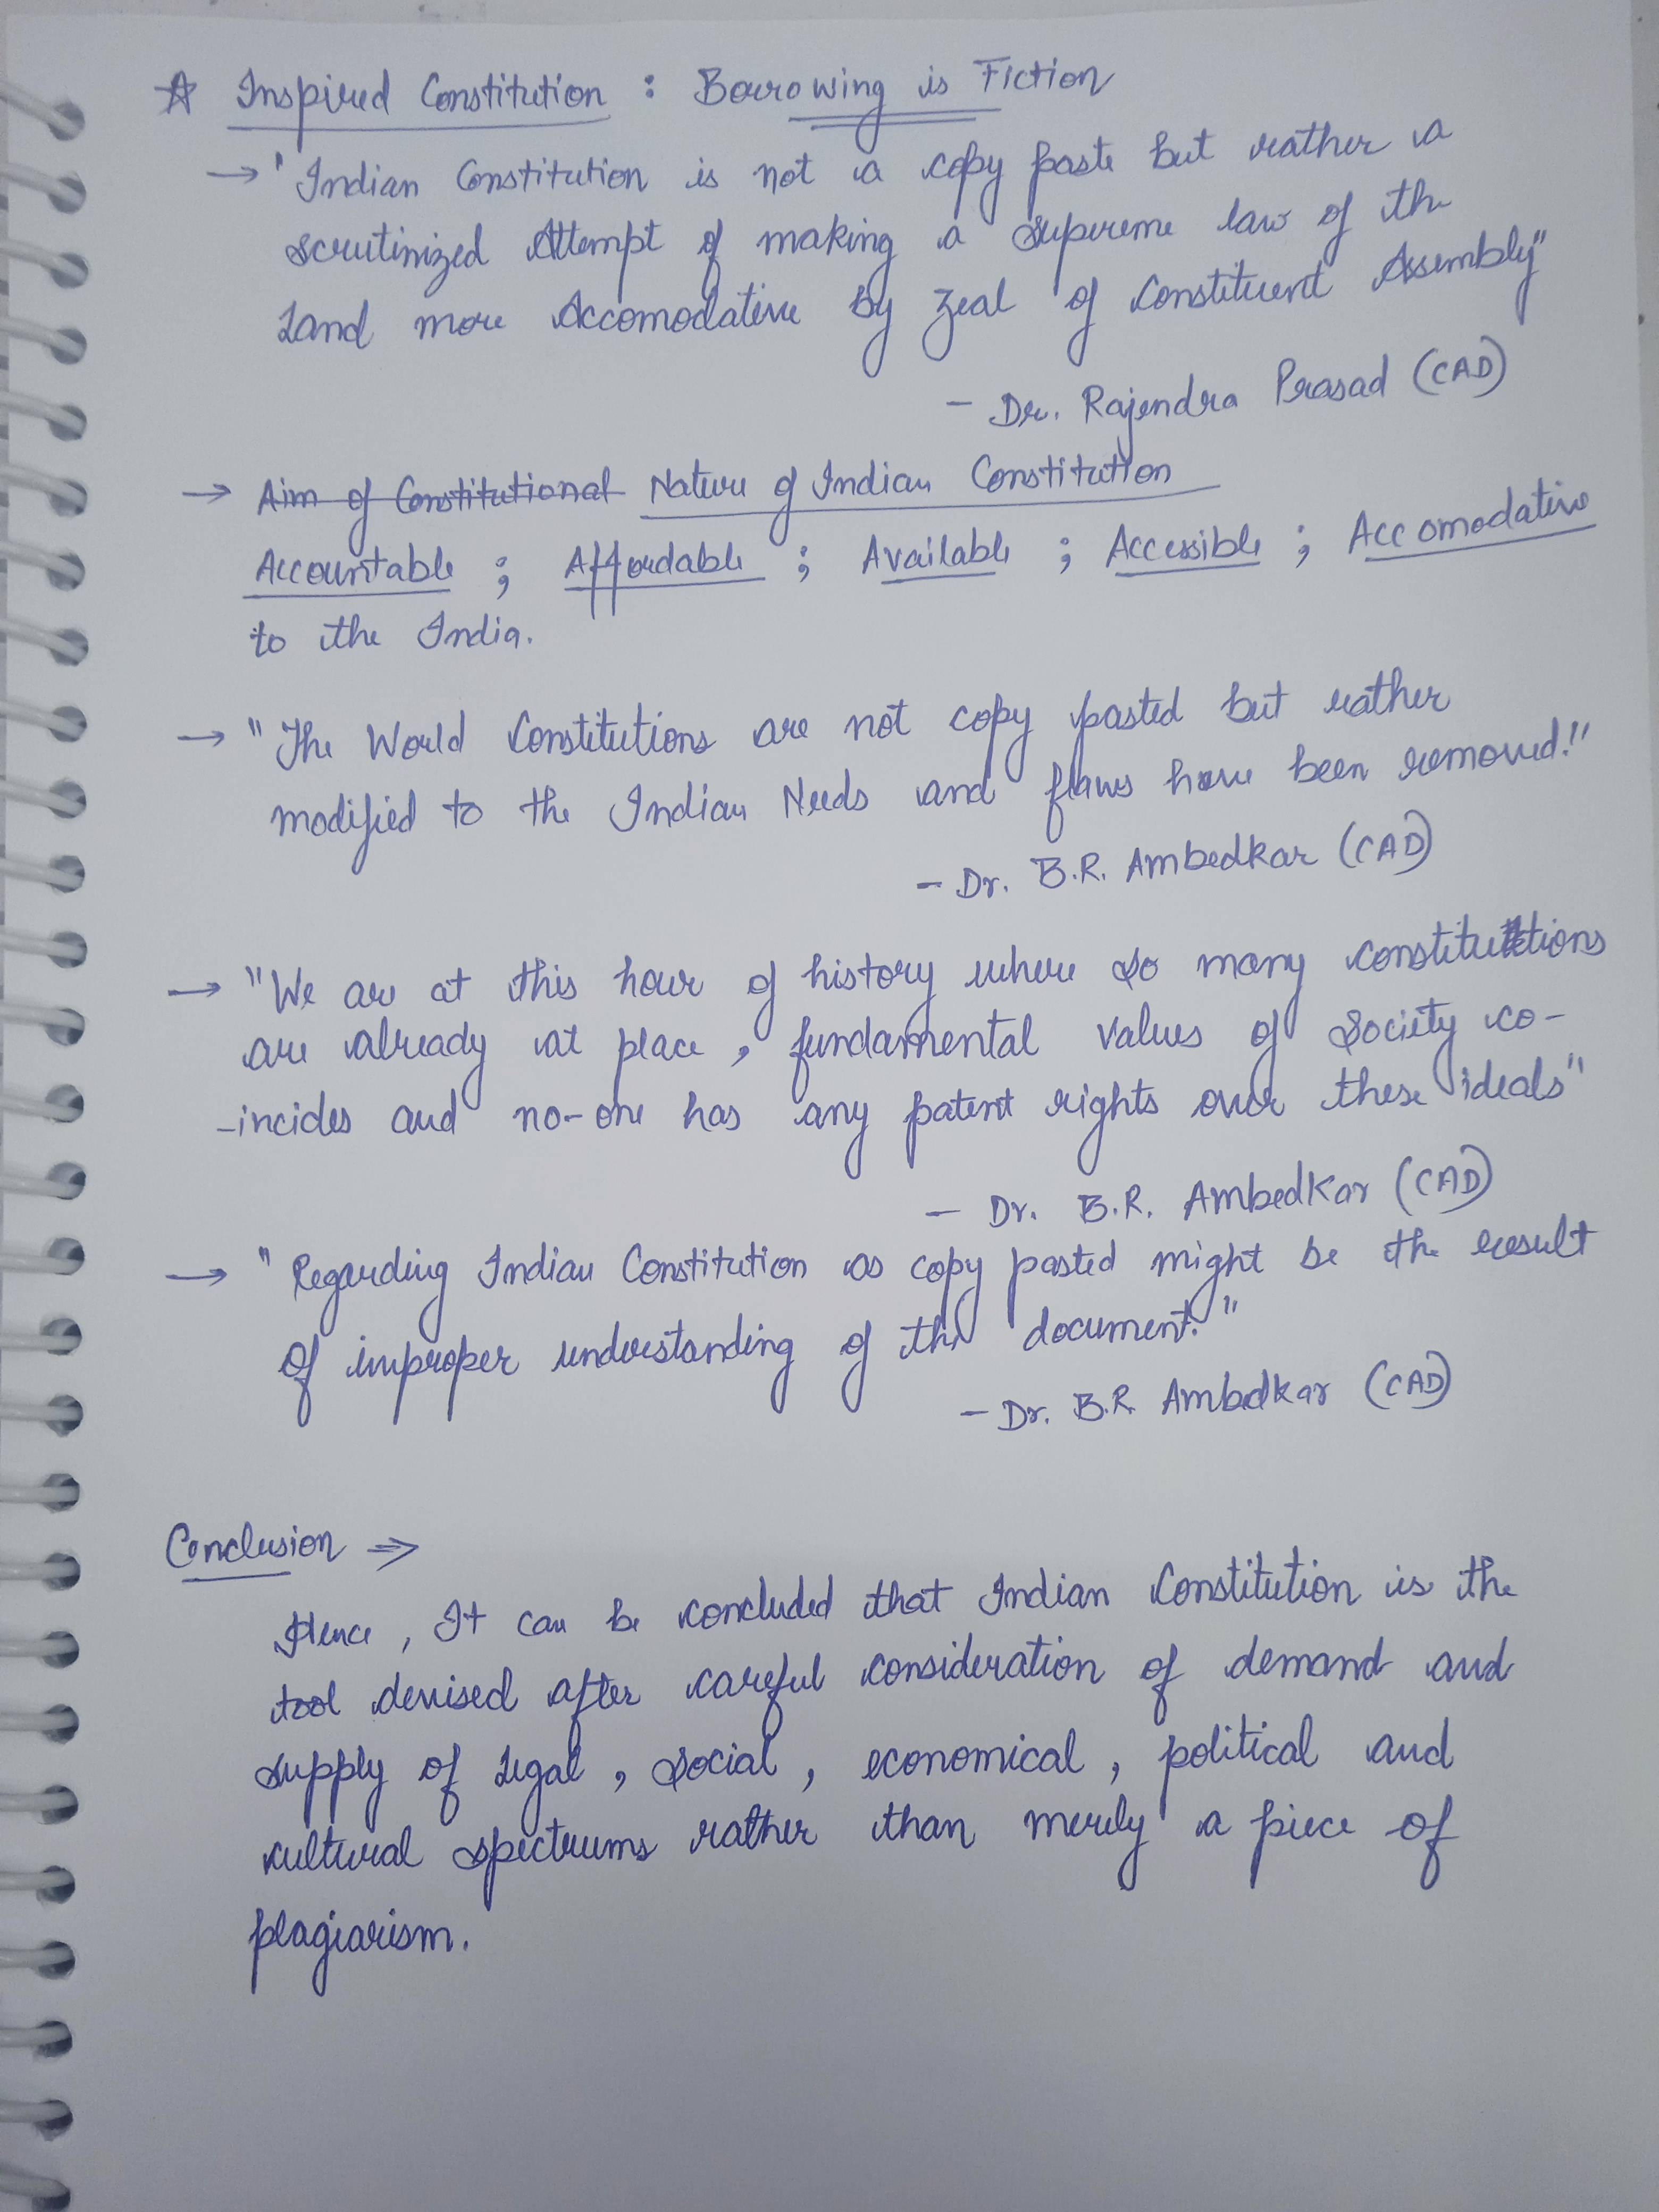 ☆ Inspired Constitution : Borrowing is Fiction
→ "Indian Constitution is not a copy paste but rather a
scrutinized Attempt of making a supreme law of the
Land more Accomodative by zeal of Constituent Assembly"
- Dr. Rajendra Prasad (CAD)
→ Aim of Constitutional Nature of Indian Constitution
Accountable ; Affordable ; Available ; Accessible ; Accomodative
to the India.
→ "The World Constitutions are not copy pasted but rather
modified to the Indian Needs and flaws have been removed."
- Dr. B.R. Ambedkar (CAD)
→ "We are at this hour of history where so many constitutions
are already at place, fundamental values of society co-
-incides and no-one has any patent rights over these ideals"
- Dr. B.R. Ambedkar (CAD)
→ "Regarding Indian Constitution as copy pasted might be the result
of improper understanding of the document."
- Dr. B.R. Ambedkar (CAD)
Conclusion ⇒
Hence, It can be concluded that Indian Constitution is the
tool devised after careful consideration of demand and
supply of legal, social, economical, political and
cultural spectrums rather than merely a piece of
plagiarism.